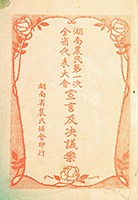 湖南農民第一次
全省代表大會
宣言及決議案
湖南省農民協會印行